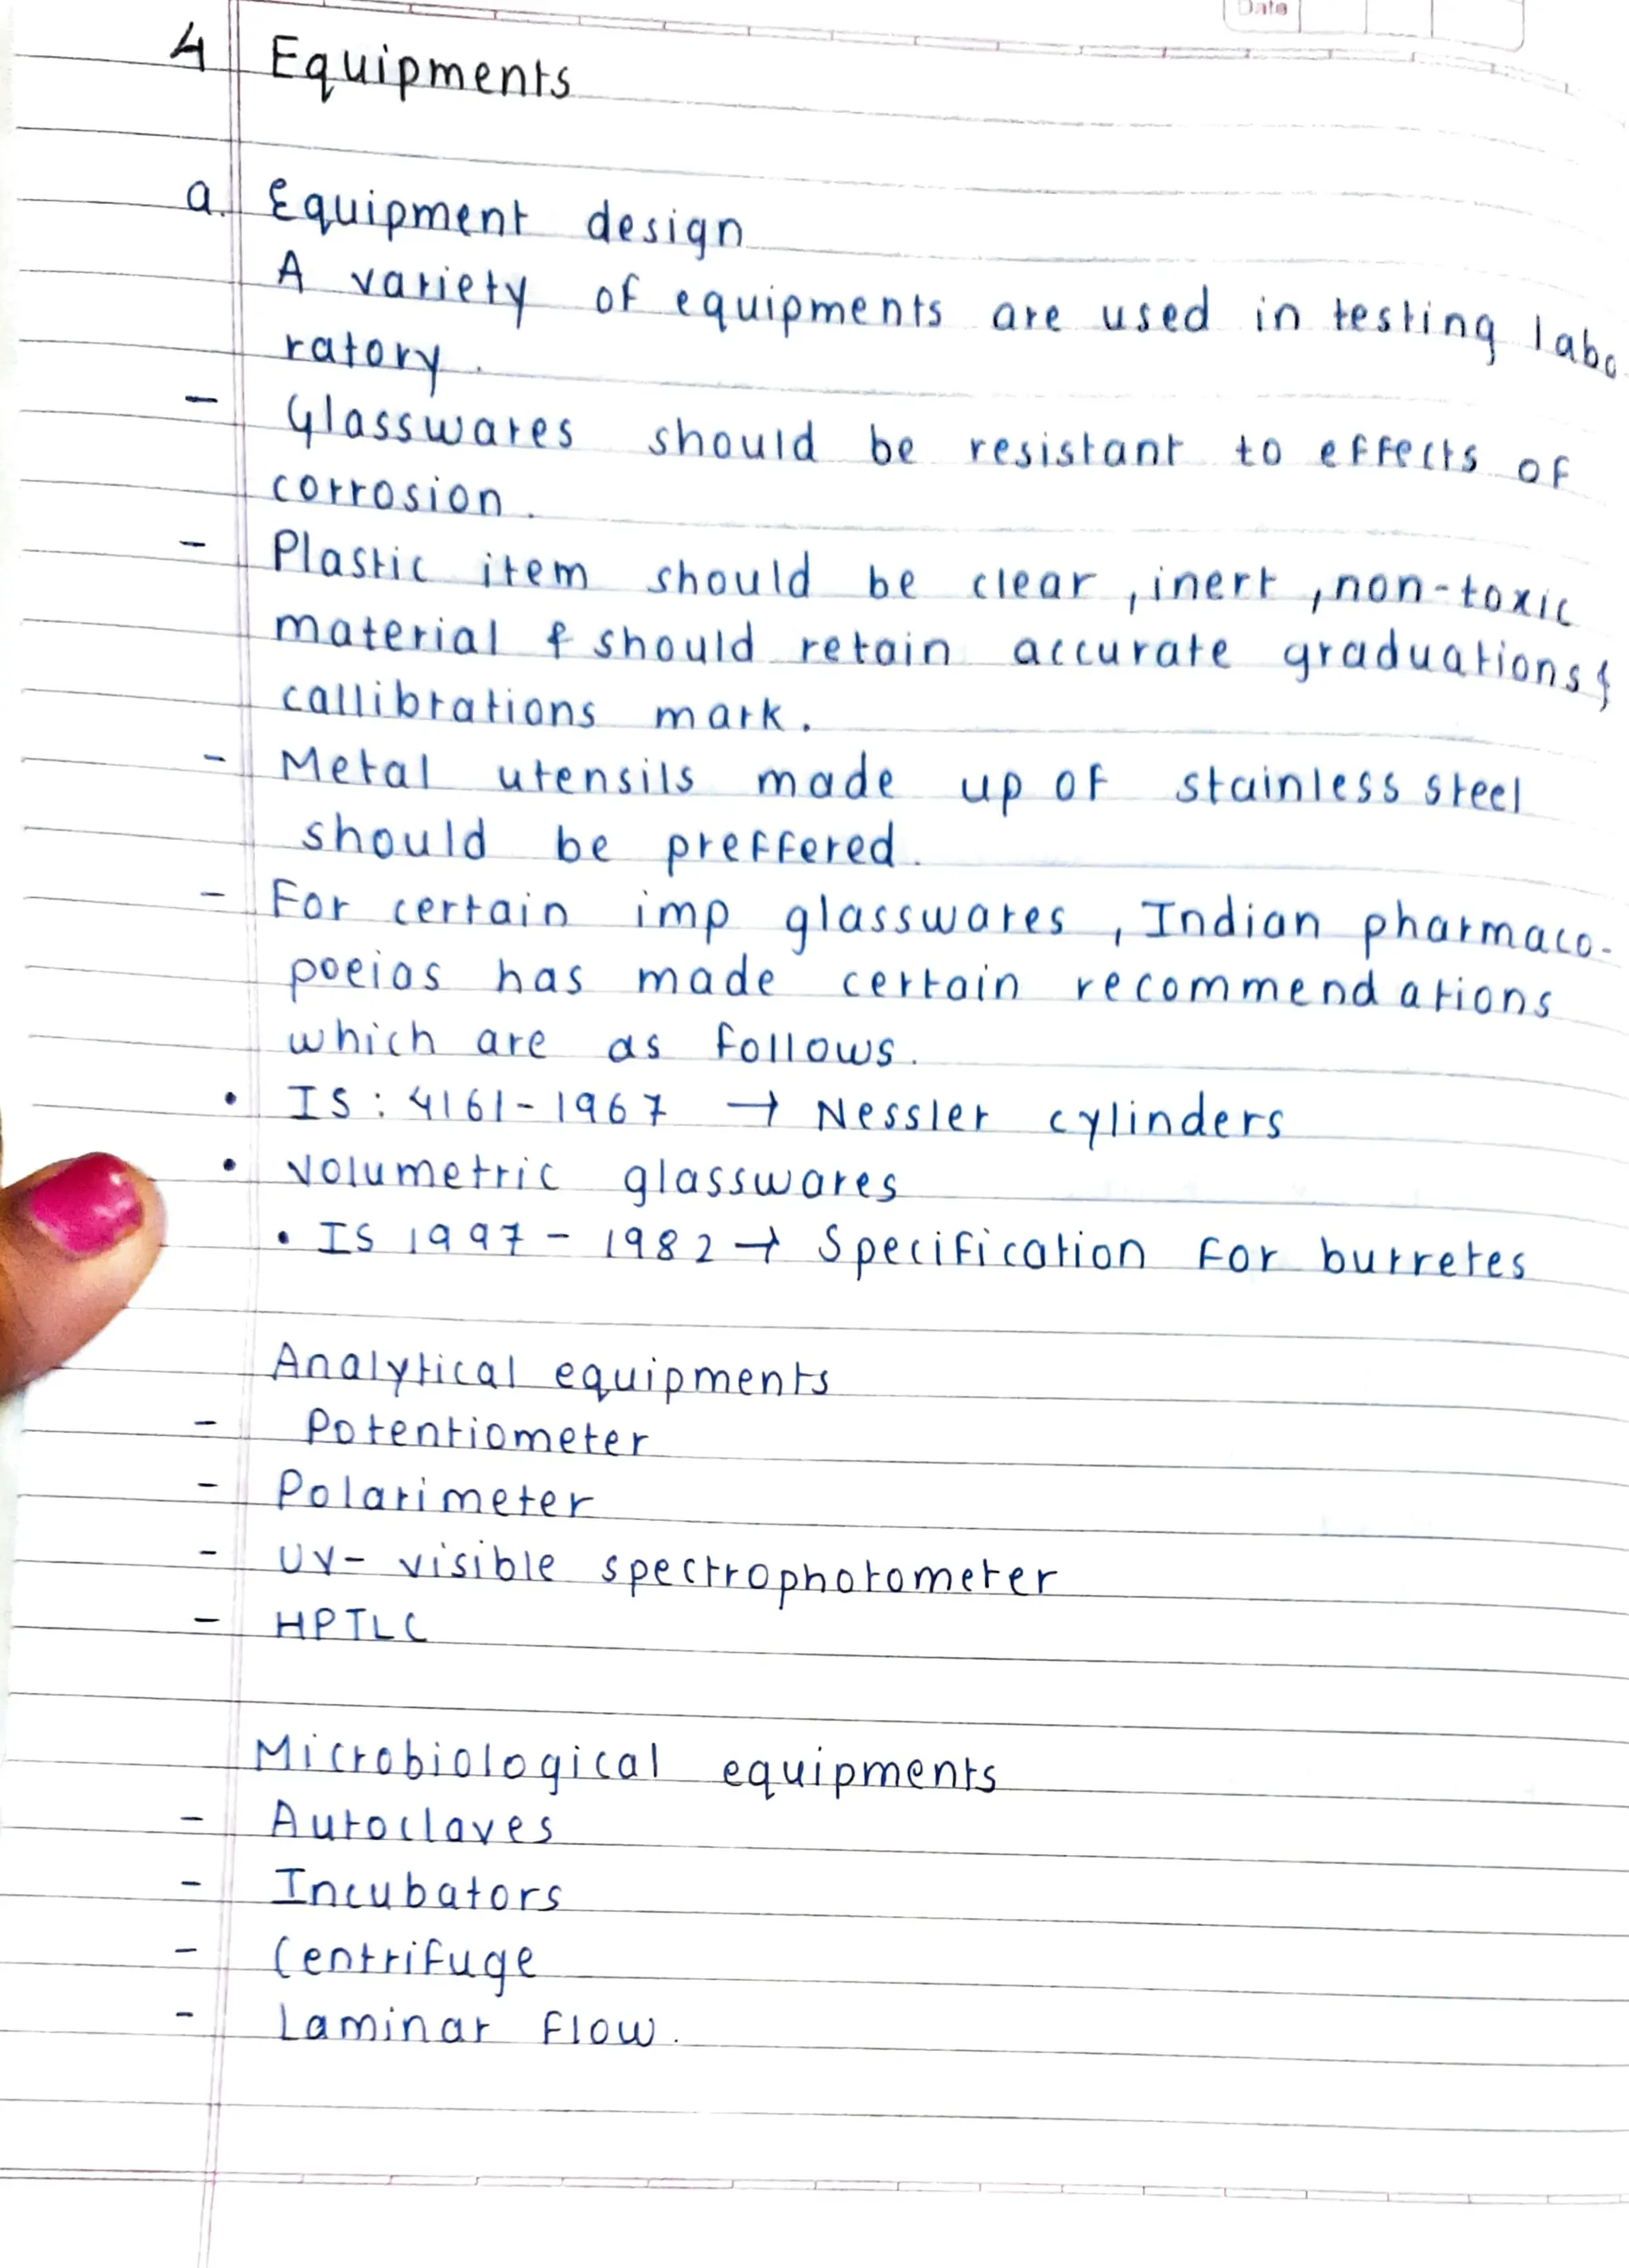 Date
4 Equipments
a. Equipment design
A variety of equipments are used in testing labo
ratory.
- Glasswares should be resistant to effects of
corrosion.
- Plastic item should be clear, inert, non-toxic
material & should retain accurate graduations &
callibrations mark.
- Metal utensils made up of stainless steel
should be preffered.
- For certain imp glasswares, Indian pharmaco-
poeias has made certain recommendations
which are as follows.
• IS : 4161-1967 → Nessler cylinders
• Volumetric glasswares
• IS 1997 - 1982 → Specification for burretes
Analytical equipments
- Potentiometer
- Polarimeter
- UV- visible spectrophotometer
- HPTLC
Microbiological equipments
- Autoclaves
- Incubators
- Centrifuge
- Laminar flow.